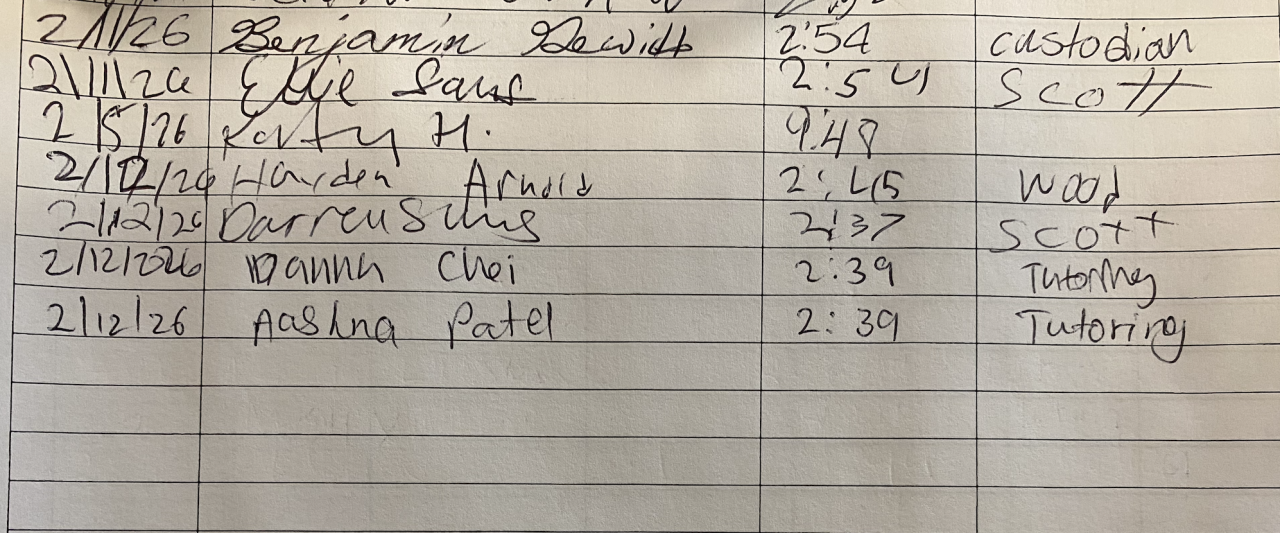 2/11/26 Benjamin Dewitt 2:54 custodian
2/11/26 Ellie 2:54 Scott
2/5/26 Katy H. 9:48
2/12/26 Hayden Arnold 2:45 Wood
2/12/26 Darren 2:37 Scott
2/12/2026 Danna Choi 2:39 Tutoring
2/12/26 Aashna Patel 2:39 Tutoring